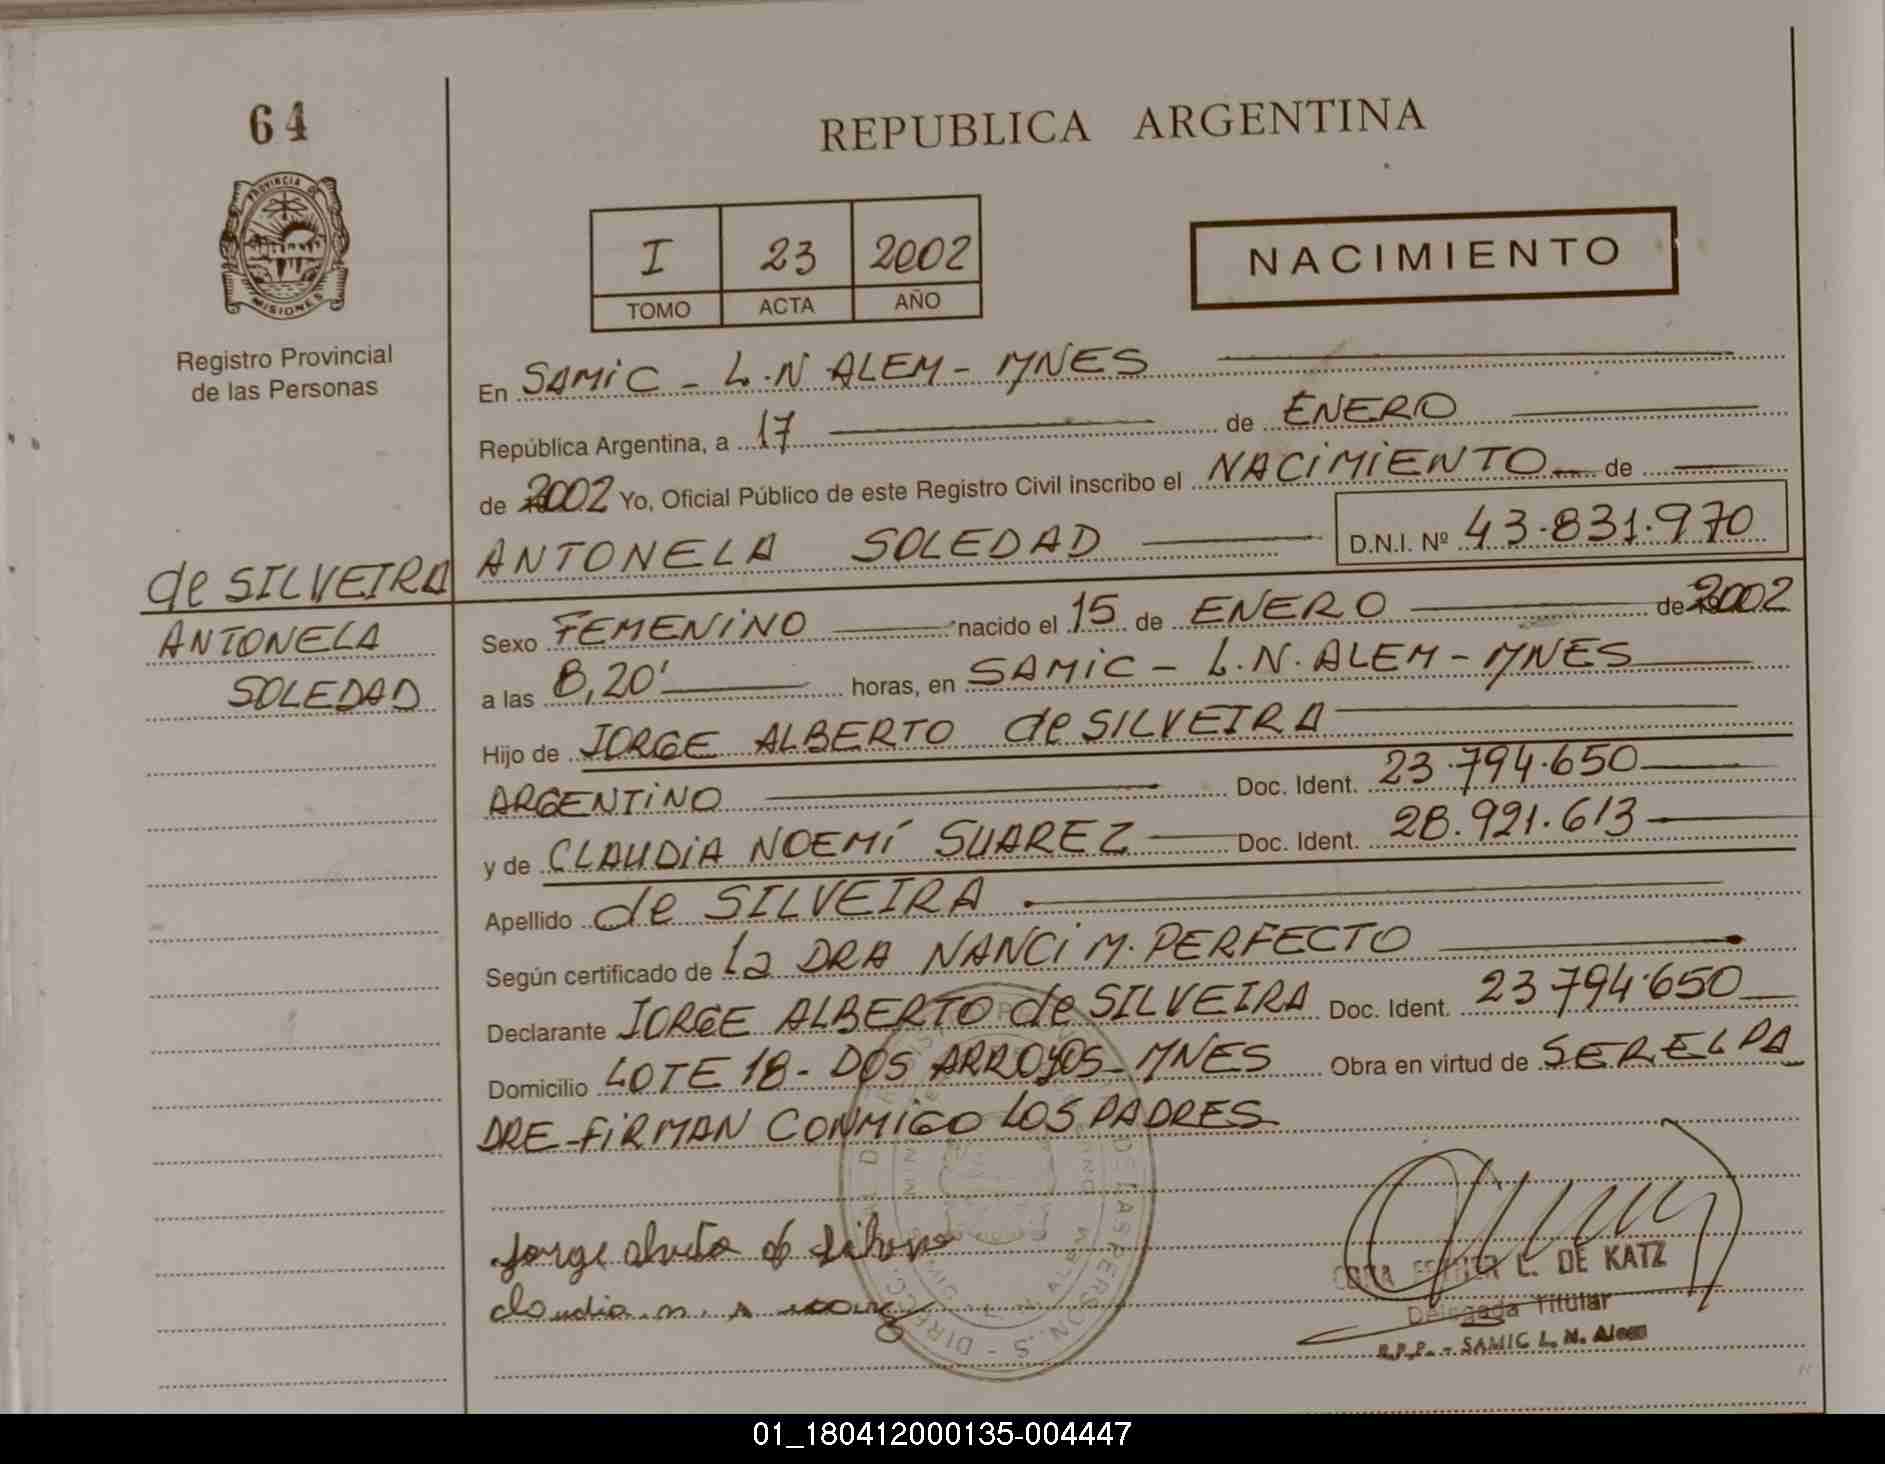 64
REPUBLICA ARGENTINA
PROVINCIA DE
MISIONES
Registro Provincial
de las Personas
I 23 2002
TOMO ACTA AÑO
NACIMIENTO
En SAMIC - L.N ALEM - MNES
República Argentina, a 17 de ENERO
de 2002 Yo, Oficial Público de este Registro Civil inscribo el NACIMIENTO de
ANTONELA SOLEDAD D.N.I. Nº 43.831.970
de SILVEIRA
ANTONELA
SOLEDAD
Sexo FEMENINO nacido el 15 de ENERO de 2002
a las 8,20' horas, en SAMIC - L.N. ALEM - MNES
Hijo de JORGE ALBERTO de SILVEIRA
ARGENTINO Doc. Ident. 23.794.650
y de CLAUDIA NOEMÍ SUAREZ Doc. Ident. 28.921.613
Apellido de SILVEIRA
Según certificado de la DRA NANCI M. PERFECTO
Declarante JORGE ALBERTO de SILVEIRA Doc. Ident. 23794.650
Domicilio LOTE 18 - DOS ARROYOS - MNES Obra en virtud de SER EL PA
DRE - FIRMAN CONMIGO LOS PADRES
ESTHER L. DE KATZ
Delegada Titular
R.P.P. - SAMIC L. N. Alem
01_180412000135-004447